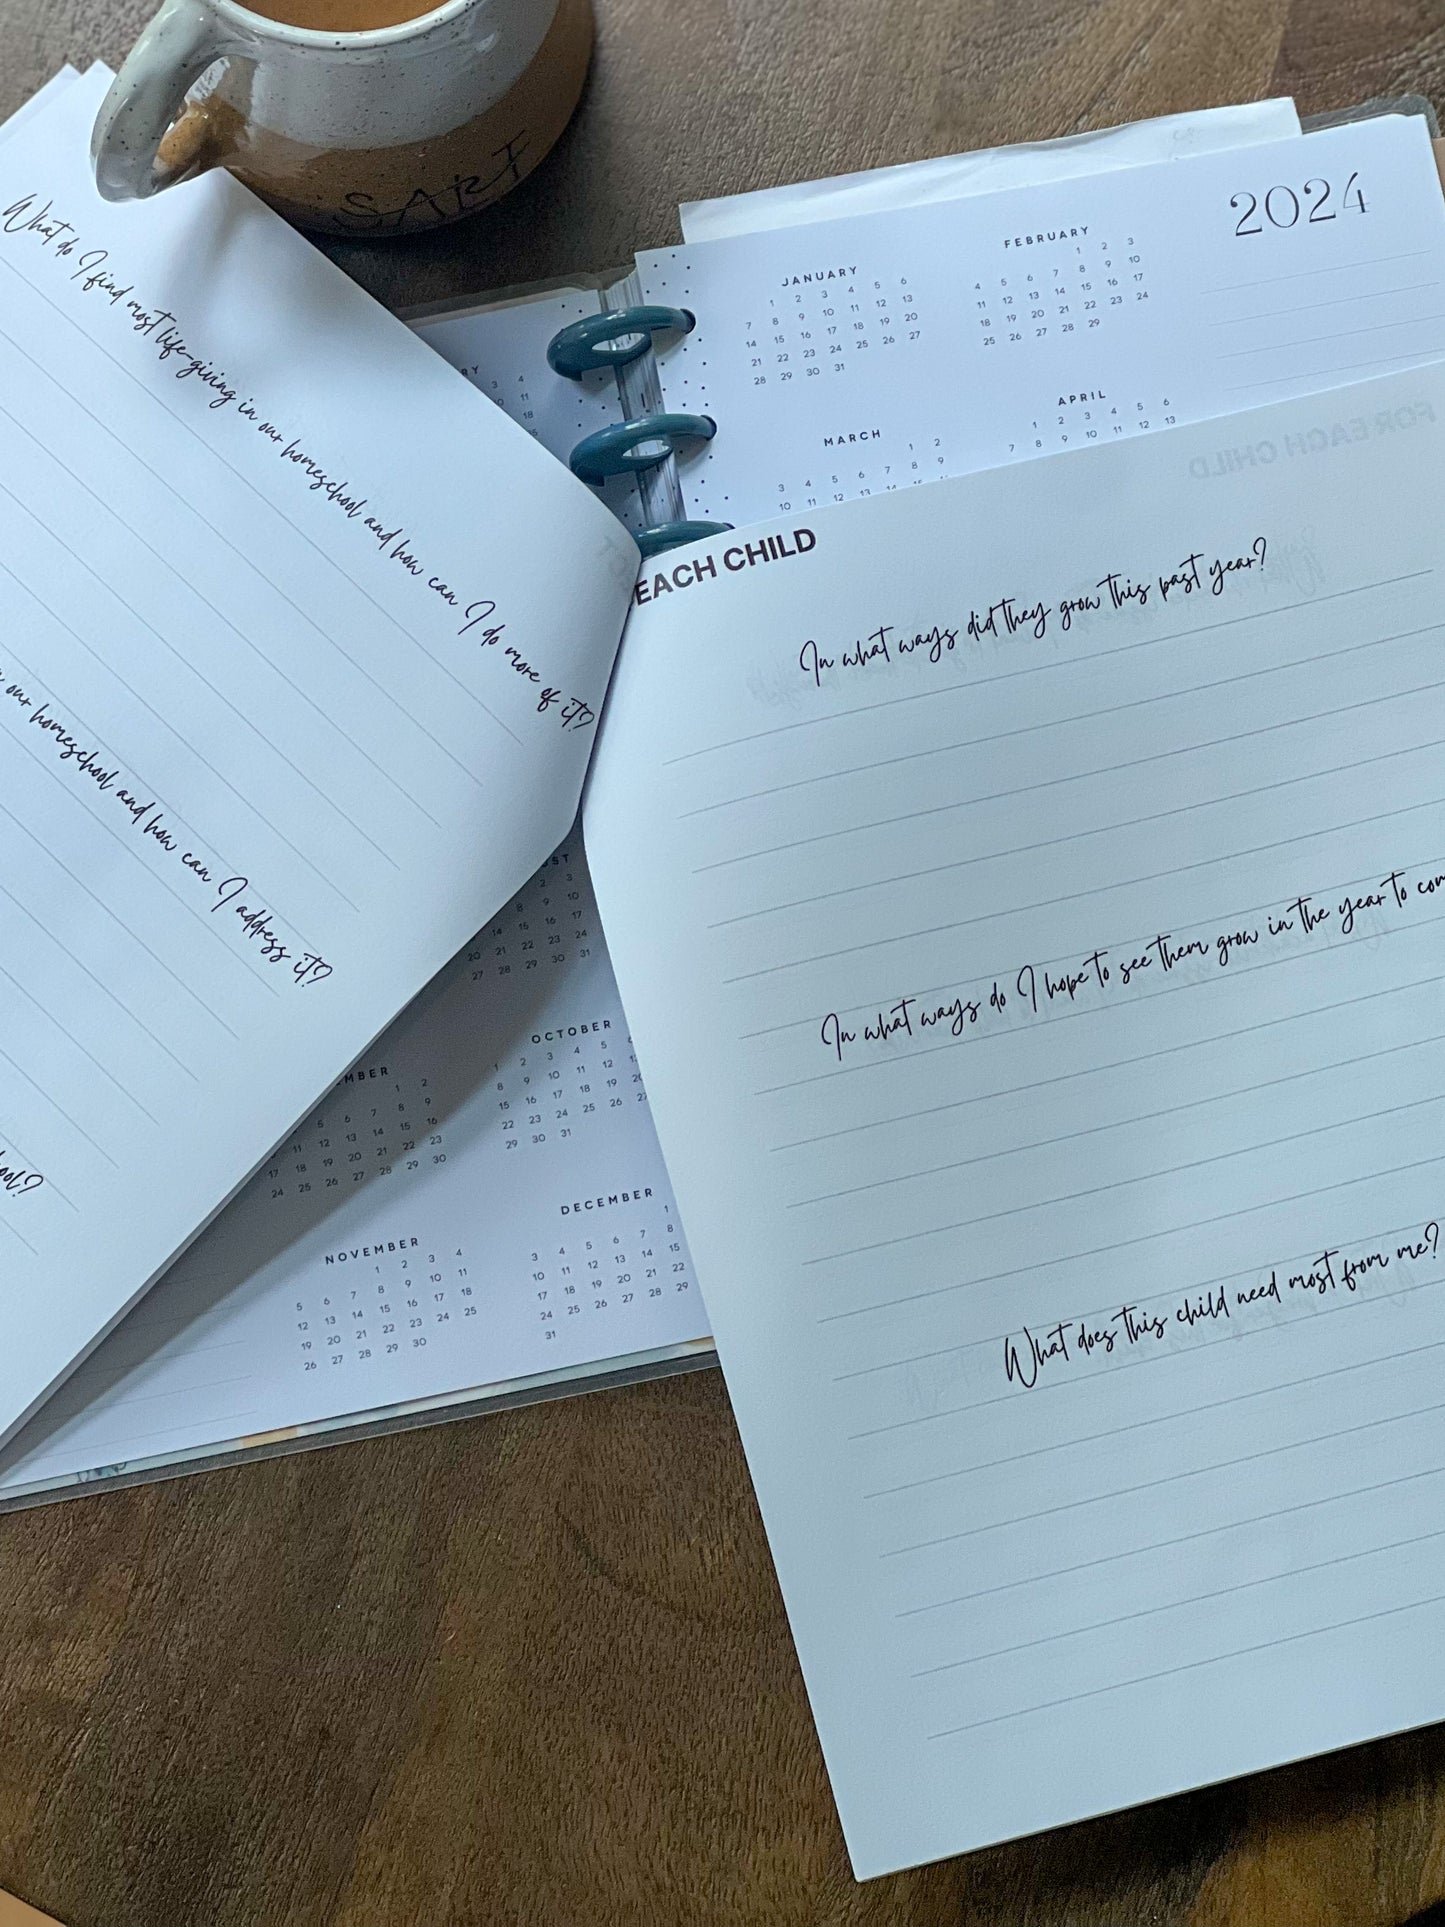 SART
What do I find most life-giving in our homeschool and how can I do more of it?
our homeschool and how can I address it?
2024
JANUARY
1 2 3 4 5 6
7 8 9 10 11 12 13
14 15 16 17 18 19 20
21 22 23 24 25 26 27
28 29 30 31
FEBRUARY
1 2 3
4 5 6 7 8 9 10
11 12 13 14 15 16 17
18 19 20 21 22 23 24
25 26 27 28 29
MARCH
1 2
3 4 5 6 7 8 9
10 11 12 13 14
APRIL
1 2 3 4 5 6
7 8 9 10 11 12 13
EACH CHILD
FOR EACH CHILD
In what ways did they grow this past year?
In what ways do I hope to see them grow in the year to com
What does this child need most from me?
3 4
11
18
2 3
8 9 10
14 15 16 17
20 21 22 23 24
27 28 29 30 31
MBER
1 2
5 6 7 8 9
11 12 13 14 15 16
17 18 19 20 21 22 23
24 25 26 27 28 29 30
OCTOBER
1 2 3 4 5 6
8 9 10 11 12 13
15 16 17 18 19 20
22 23 24 25 26 27
29 30 31
NOVEMBER
1 2 3 4
5 6 7 8 9 10 11
12 13 14 15 16 17 18
19 20 21 22 23 24 25
26 27 28 29 30
DECEMBER
1
3 4 5 6 7 8
10 11 12 13 14 15
17 18 19 20 21 22
24 25 26 27 28 29
31